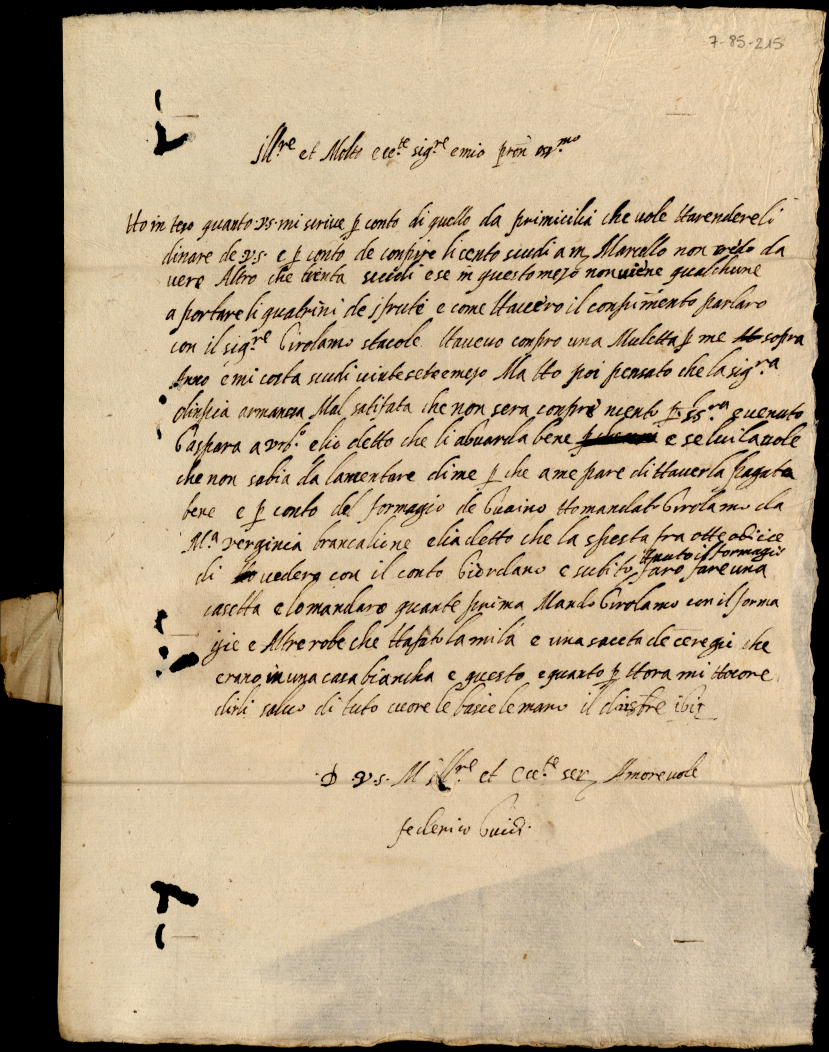 7-85-215
Ill.re et Molto ecc.te sig.re e mio pron oss.mo
Ho in teso quanto v.s. mi scrive p conto di quello da primicilia che vole Harendere li
dinare de v.s. e p conto de conpire li cento scudi a m Marcello non credo da
vere Altro che trenta scudi e se in questo mezo non viene qualchune
a portare li quatrini de i frute e come Havero il consumento parlaro
con il sig.re Girolamo stacole Havevo conpro una Muletta p me sopra
Anno e mi costa scudi vinte sete e mezo Ma Ho poi pensato che la sig.ra
olinpia Mal satisfata che non sera conpre p ss.ra e venuto
Gaspara a e lio detto che li abuarda bene e se lui la vole
che non sabia da lamentare di me p che a me pare di Haverla pagata
bene e p conto del formagio de Guaino Ho mandato Girolamo da
M.a verginia brancalione e lia detto che la spesta fra otto o dice
di vedera con il conto Giordano e subito Hauto il formagio faro fare una
casetta e lo mandaro quante prima Mando Girolamo con il forma
gie e Altre robe che Ha la mila e una saceta de ceregie che
erano in una casa biancha e questo e quanto p Hora mi Hocore
dirli salvo di tuto cuore le bacie le mano il di
D v.s. M Ill.re et Ecc.te ser Amorevole
federico Guidi